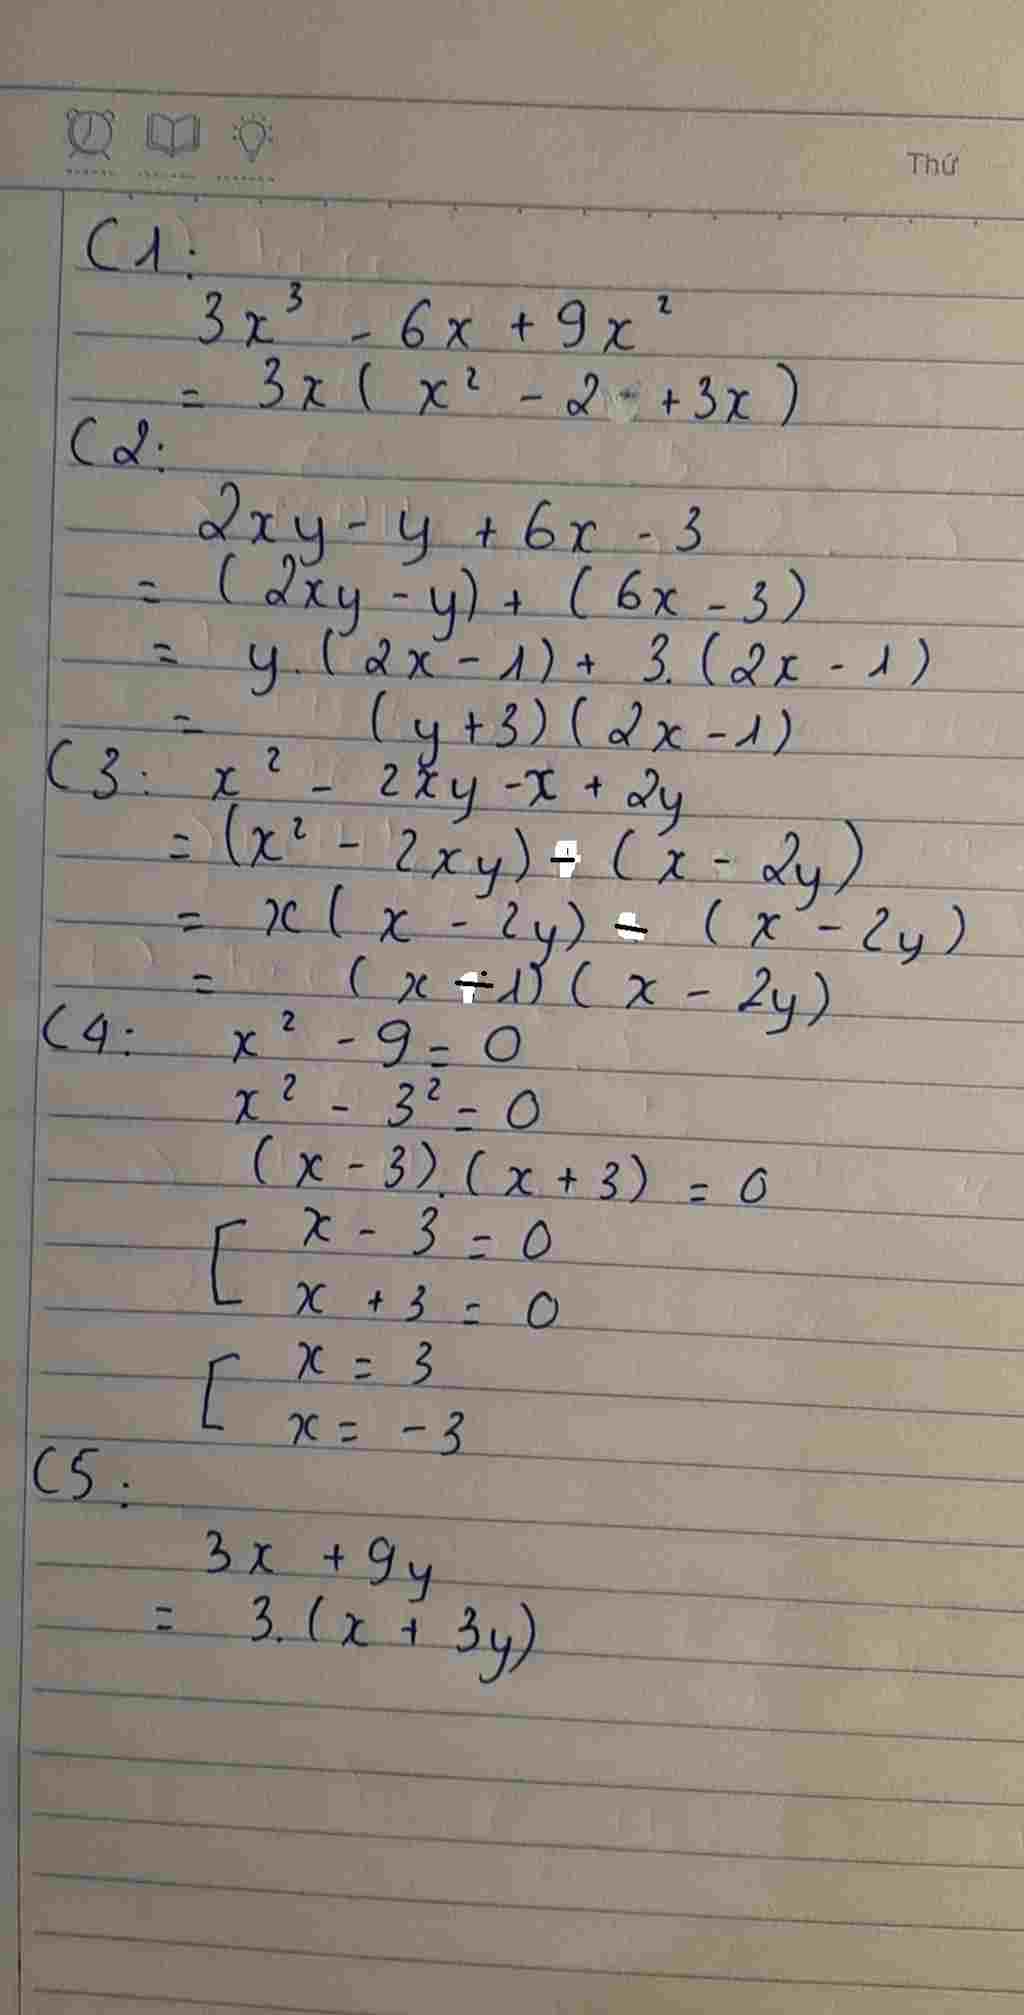 Thứ
C1:
3x³ - 6x + 9x²
= 3x ( x² - 2 + 3x )
C2:
2xy - y + 6x - 3
= (2xy - y) + (6x - 3)
= y.(2x - 1) + 3.(2x - 1)
= (y + 3)(2x - 1)
C3: x² - 2xy - x + 2y
= (x² - 2xy) - (x - 2y)
= x(x - 2y) - (x - 2y)
= (x - 1)(x - 2y)
C4: x² - 9 = 0
x² - 3² = 0
(x - 3).(x + 3) = 0
[ x - 3 = 0
x + 3 = 0
[ x = 3
x = -3
C5:
3x + 9y
= 3.(x + 3y)